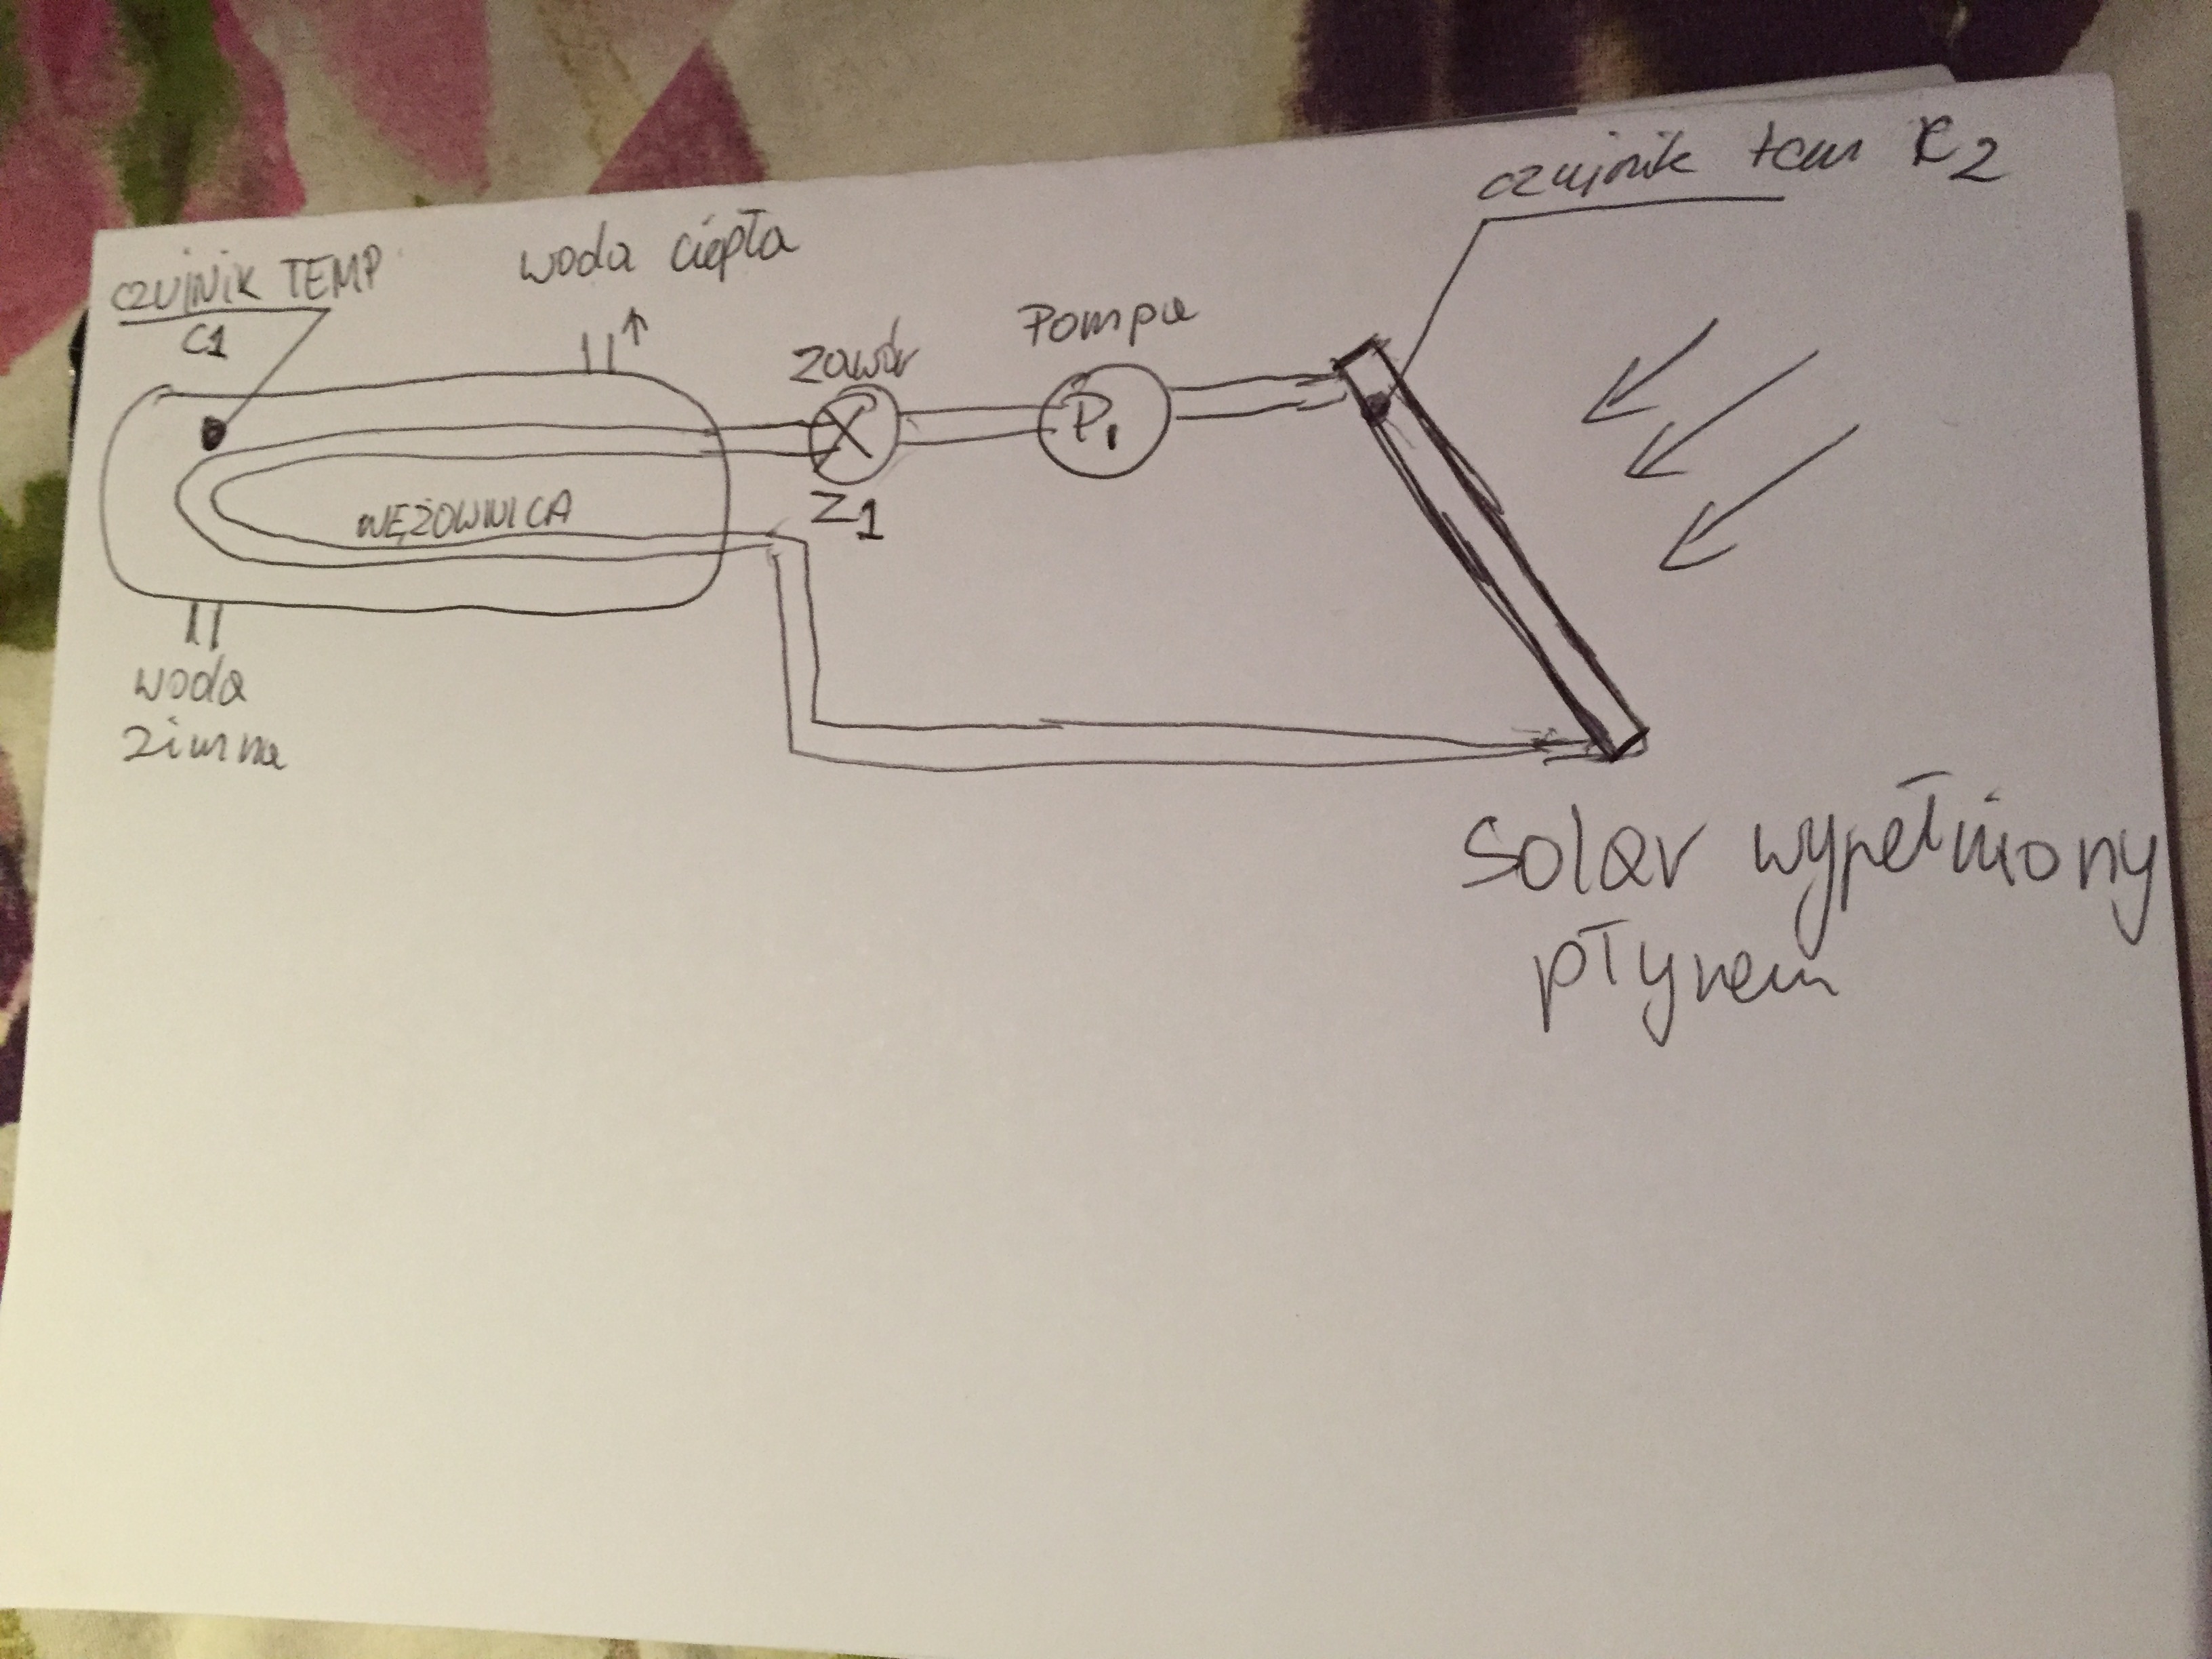 czujnik tem C2
CZUJNIK TEMP
C1
woda ciepła
zawór
Z1
Pompa
P1
WĘŻOWNICA
woda
zimna
Solar wypełniony
płynem